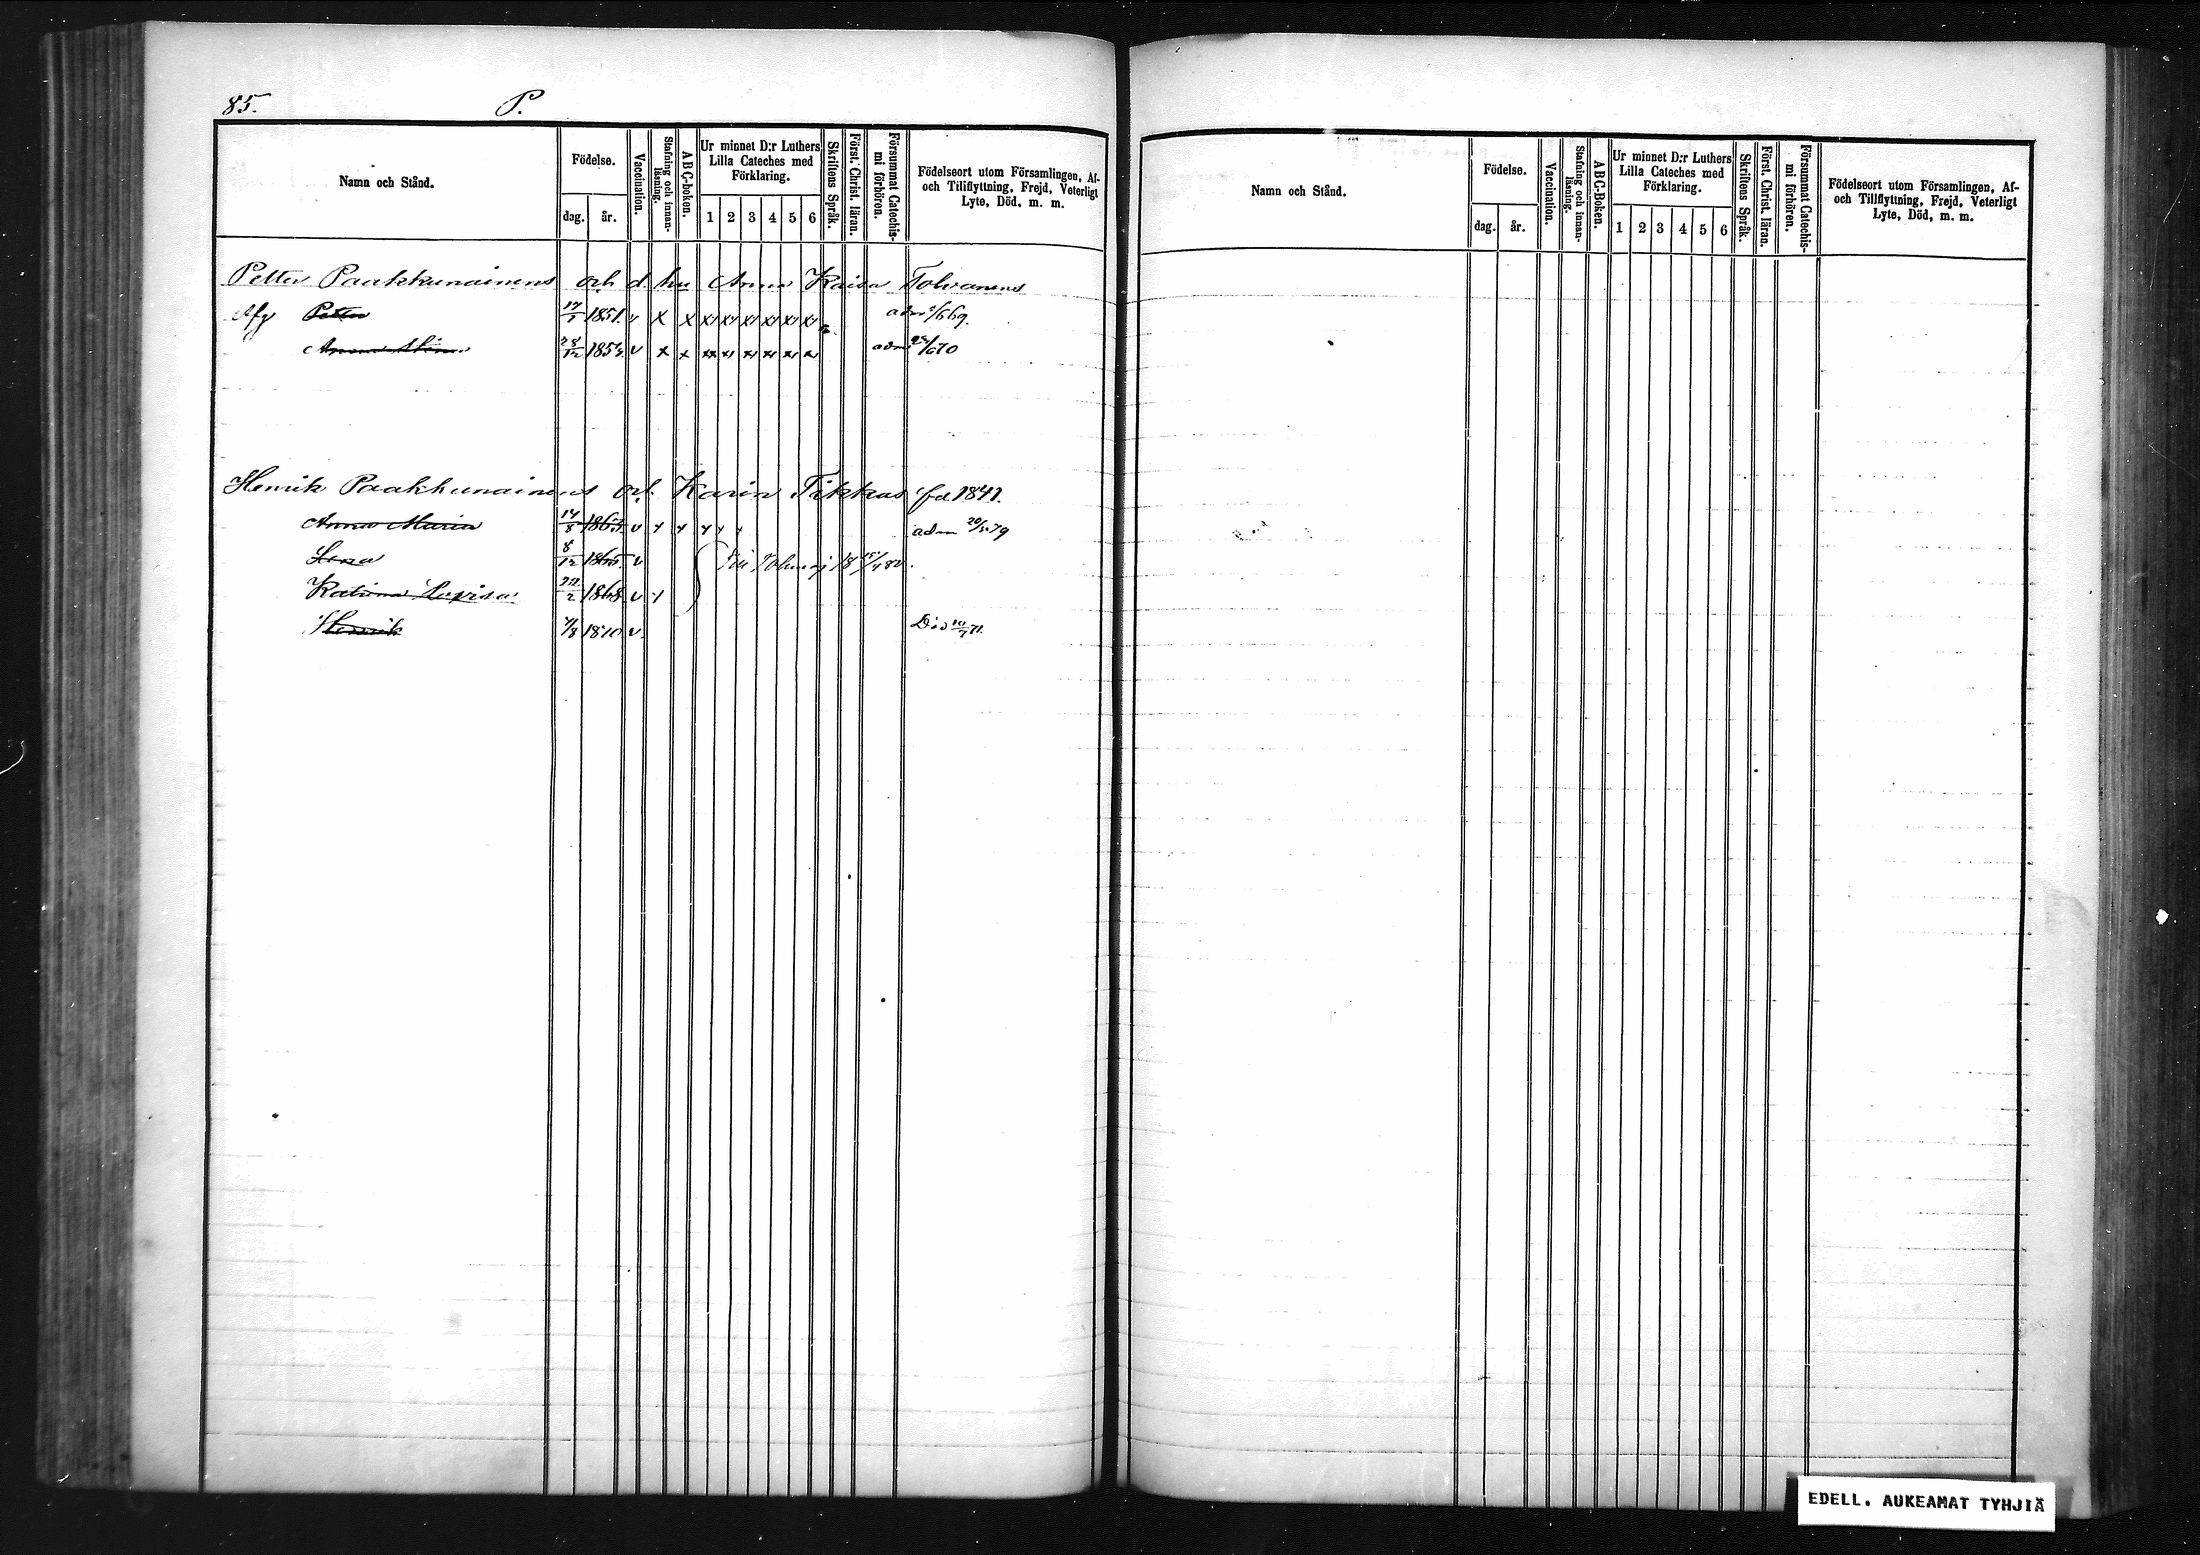 85. P.
Namn och Stånd. Födelse. dag. år. Vaccination. Stafning och innanläsning. ABC-boken. Ur minnet D:r Luthers Lilla Cateches med Förklaring. 1 2 3 4 5 6 Skriftens Språk. Först. Christ. läran. Försummat Catechismi förhören. Födelseort utom Församlingen, Af- och Tillflyttning, Frejd, Veterligt Lyte, Död, m. m.
Petter Paakkunainens och d. hu Anna Kaisa Tolvanens
Afg Petter 17/1 1851. v x x adm 69.
Anna Stina 28/12 1854 v x x adm 70
Henrik Paakkunainens och Karin Tikkas fd 1841.
Anna Maria 14/8 1863 v x x adm 20/ 79
Lena 8/12 1865 v
Katrina Lovisa 22/2 1868 v x
Henrik 7/8 1870 v Död 10/7 71.
Namn och Stånd. Födelse. dag. år. Vaccination. Stafning och innanläsning. ABC-Boken. Ur minnet D:r Luthers Lilla Cateches med Förklaring. 1 2 3 4 5 6 Skriftens Språk. Först. Christ. läran. Försummat Catechismi förhören. Födelseort utom Församlingen, Af- och Tillflyttning, Frejd, Veterligt Lyte, Död, m. m.
EDELL. AUKEAMAT TYHJIÄ